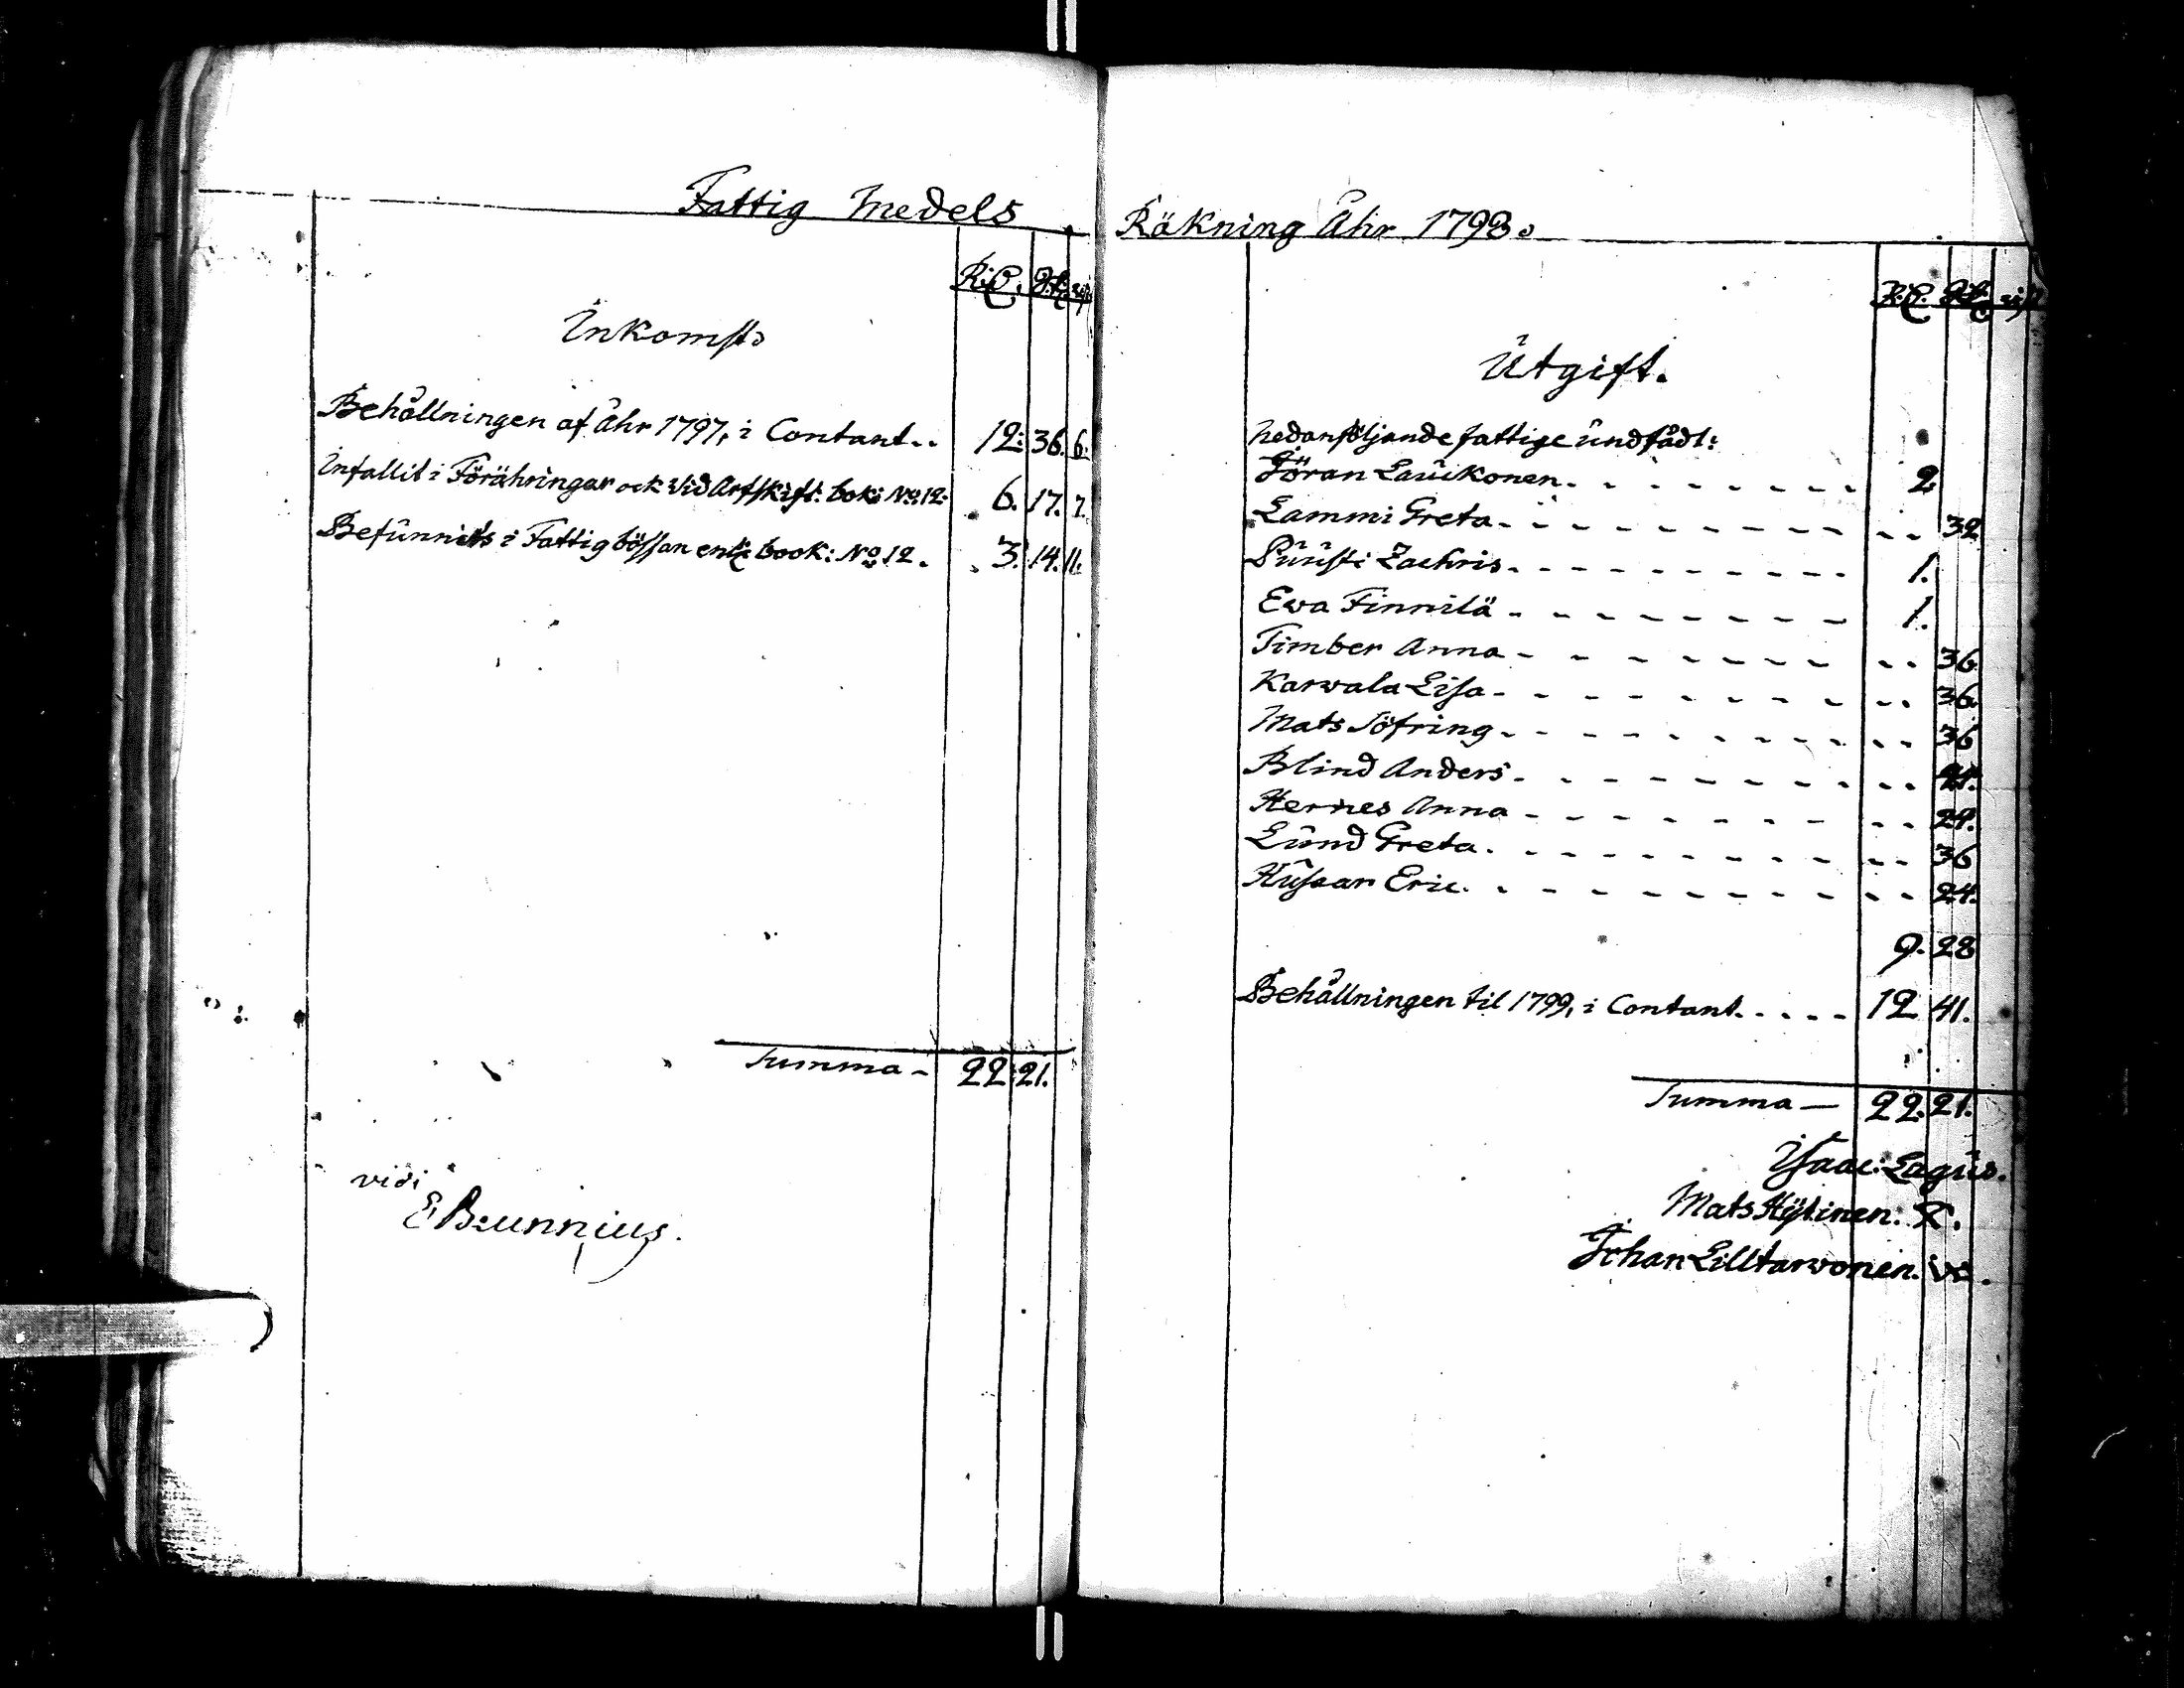 Fattig Medels
Rd. sk. rst.
Inkomst.
Behållningen af åhr 1797, i Contant.. 12: 36. 6.
Infallit i Förähringar ock vid Arfskift: bok: No. 12. 6. 17. 7.
Befunnits i Fattigbössan enl: book: No. 12. 3. 14. 11.
Summa - 22: 21.
vidi
E Brunnius.
Räkning Åhr 1798.
Rd. sk. rst.
Utgift.
Nedanföljande fattige undfådt:
Jöran Lauikonen. 2
Lammi Greta - 32
Puusti Zachris. 1.
Ewa Finnilä - 1.
Timber Anna - 36
Karwala Lisa - 36.
Mats Söfring - 36
Blind Anders - 24.
Hernes Anna - 24.
Lund Greta. 36
Husaar Eric. 24.
9. 28
Behållningen til 1799, i Contant. 12 41.
Summa — 22. 21.
Isaac: Lagus.
Mats Hytinen.
Johan Lilltarvonen.